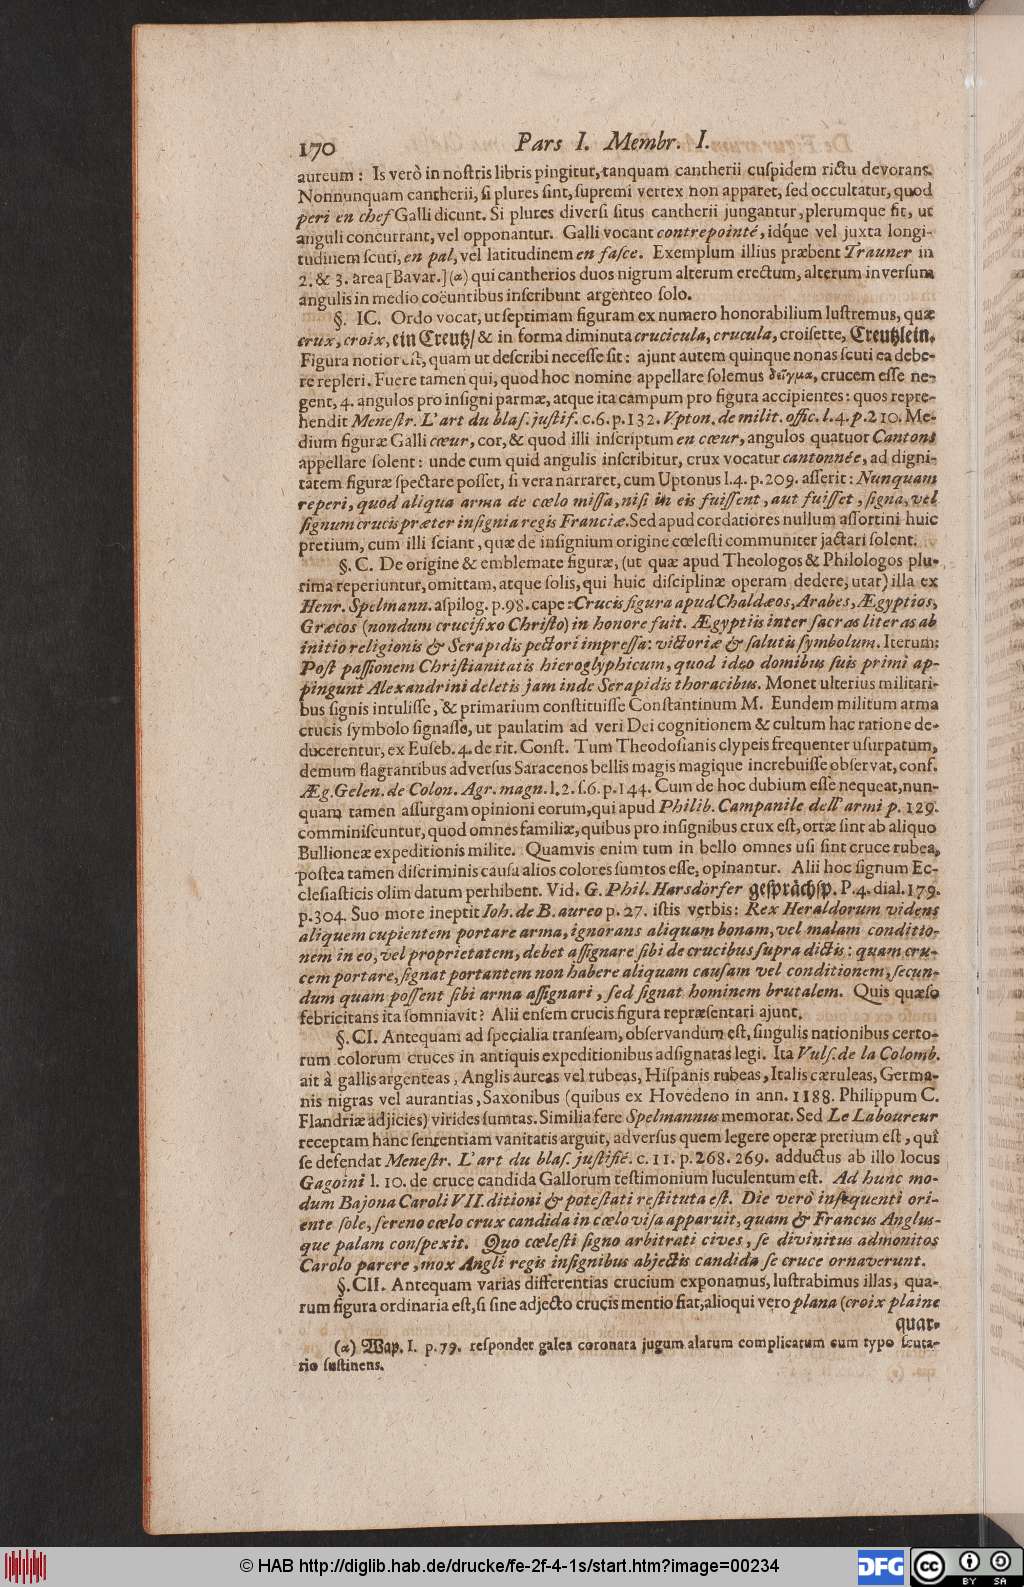 170 Pars I. Membr. I.
aureum: Is verò in nostris libris pingitur, tanquam cantherii cuspidem rictu devorans.
Nonnunquam cantherii, si plures sint, supremi vertex non apparet, sed occultatur, quod
peri en chef Galli dicunt. Si plures diversi situs cantherii jungantur, plerumque fit, ut
anguli concurrant, vel opponantur. Galli vocant contrepointé, idq́ue vel juxta longi-
tudinem scuti, en pal, vel latitudinem en fasce. Exemplum illius præbent Trauner in
2. & 3. area [Bavar.] (α) qui cantherios duos nigrum alterum erectum, alterum inversum
angulis in medio coëuntibus inscribunt argenteo solo.
§. IC. Ordo vocat, ut septimam figuram ex numero honorabilium lustremus, quæ
crux, croix, ein Creutz/ & in forma diminuta crucicula, crucula, croisette, Creutzlein.
Figura notior est, quam ut describi necesse sit: ajunt autem quinque nonas scuti ea debe-
re repleri. Fuere tamen qui, quod hoc nomine appellare solemus δεῖγμα, crucem esse ne-
gent, 4. angulos pro insigni parmæ, atque ita campum pro figura accipientes: quos repre-
hendit Menestr. L'art du blas. justif. c. 6. p. 132. Vpton. de milit. offic. l. 4. p. 210. Me-
dium figuræ Galli cœur, cor, & quod illi inscriptum en cœur, angulos quatuor Cantons
appellare solent: unde cum quid angulis inscribitur, crux vocatur cantonnée, ad digni-
tatem figuræ spectare posset, si vera narraret, cum Uptonus l. 4. p. 209. asserit: Nunquam
reperi, quod aliqua arma de cœlo missa, nisi in eis fuissent, aut fuisset, signa, vel
signum crucis præter insignia regis Franciæ. Sed apud cordatiores nullum assortini huic
pretium, cum illi sciant, quæ de insignium origine cœlesti communiter jactari solent.
§. C. De origine & emblemate figuræ, (ut quæ apud Theologos & Philologos plu-
rima reperiuntur, omittam, atque solis, qui huic disciplinæ operam dedere, utar) illa ex
Henr. Spelmann. aspilog. p. 98. cape: Crucis figura apud Chaldæos, Arabes, Ægyptios,
Græcos (nondum crucifixo Christo) in honore fuit. Ægyptiis inter sacras literas ab
initio religionis & Serapidis pectori impressa: victoriæ & salutis symbolum. Iterum:
Post passionem Christianitatis hieroglyphicum, quod ideo domibus suis primi ap-
pingunt Alexandrini deletis jam inde Serapidis thoracibus. Monet ulterius militari-
bus signis intulisse, & primarium constituisse Constantinum M. Eundem militum arma
crucis symbolo signasse, ut paulatim ad veri Dei cognitionem & cultum hac ratione de-
ducerentur, ex Euseb. 4. de rit. Const. Tum Theodosianis clypeis frequenter usurpatum,
demum flagrantibus adversus Saracenos bellis magis magique increbuisse observat, conf.
Æg. Gelen. de Colon. Agr. magn. l. 2. s. 6. p. 144. Cum de hoc dubium esse nequeat, nun-
quam tamen assurgam opinioni eorum, qui apud Philib. Campanile dell' armi p. 129.
comminiscuntur, quod omnes familiæ, quibus pro insignibus crux est, ortæ sint ab aliquo
Bullioneæ expeditionis milite. Quamvis enim tum in bello omnes usi sint cruce rubea,
postea tamen discriminis causa alios colores sumtos esse, opinantur. Alii hoc signum Ec-
clesiasticis olim datum perhibent. Vid. G. Phil. Harsdörfer gesprächsp. P. 4. dial. 179.
p. 304. Suo more ineptit Joh. de B. aureo p. 27. istis verbis: Rex Heraldorum videns
aliquem cupientem portare arma, ignorans aliquam bonam, vel malam conditio-
nem in eo, vel proprietatem, debet assignare sibi de crucibus supra dictis: quam cru-
cem portare, signat portantem non habere aliquam causam vel conditionem, secun-
dum quam possent sibi arma assignari, sed signat hominem brutalem. Quis quæso
febricitans ita somniavit? Alii ensem crucis figura repræsentari ajunt.
§. CI. Antequam ad specialia transeam, observandum est, singulis nationibus certo-
rum colorum cruces in antiquis expeditionibus adsignatas legi. Ita Vuls. de la Colomb.
ait à gallis argenteas, Anglis aureas vel rubeas, Hispanis rubeas, Italis cæruleas, Germa-
nis nigras vel aurantias, Saxonibus (quibus ex Hovedeno in ann. 1188. Philippum C.
Flandriæ adjicies) virides sumtas. Similia fere Spelmannus memorat. Sed Le Laboureur
receptam hanc sententiam vanitatis arguit, adversus quem legere operæ pretium est, quî
se defendat Menestr. L'art du blas. justifié. c. 11. p. 268. 269. adductus ab illo locus
Gagoini l. 10. de cruce candida Gallorum testimonium luculentum est. Ad hunc mo-
dum Bajona Caroli VII. ditioni & potestati restituta est. Die verò insequenti ori-
ente sole, sereno cœlo crux candida in cœlo visa apparuit, quam & Francus Anglus-
que palam conspexit. Quo cœlesti signo arbitrati cives, se divinitus admonitos
Carolo parere, mox Angli regis insignibus abjectis candida se cruce ornaverunt.
§. CII. Antequam varias differentias crucium exponamus, lustrabimus illas, qua-
rum figura ordinaria est, si sine adjecto crucis mentio fiat, alioqui vero plana (croix plaine
quar-
(α) Wap. I. p. 79. respondet galea coronata jugum alatum complicatum cum typo scuta-
rio sustinens.
© HAB http://diglib.hab.de/drucke/fe-2f-4-1s/start.htm?image=00234
DFG
cc BY SA